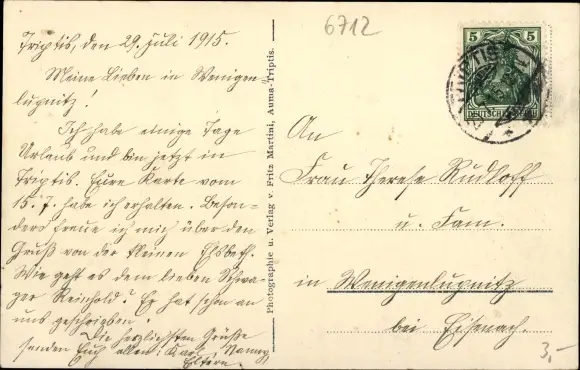 Triptis, den 29. Juli 1915.
Meine Lieben in Wenigen-
lupnitz!
Ich habe einige Tage
Urlaub und bin jetzt in
Triptis. Eure Karte vom
15. 7. habe ich erhalten. Beson-
ders freue ich mich über den
Gruß von der kleinen Elsbeth.
Wie geht es dem lieben Schwa-
ger Reinhold? Er hat schon an
uns geschrieben.
Die herzlichsten Grüße
senden Euch allen: Karl,
Eltern
Photographie u. Verlag v. Fritz Martini, Auma-Triptis.
6712
5 5
TRIPTIS
DEUTSCHES REICH
An
Frau Therese Rudloff
u. Fam.
in Wenigenlupnitz
bei Eisenach.
3,-